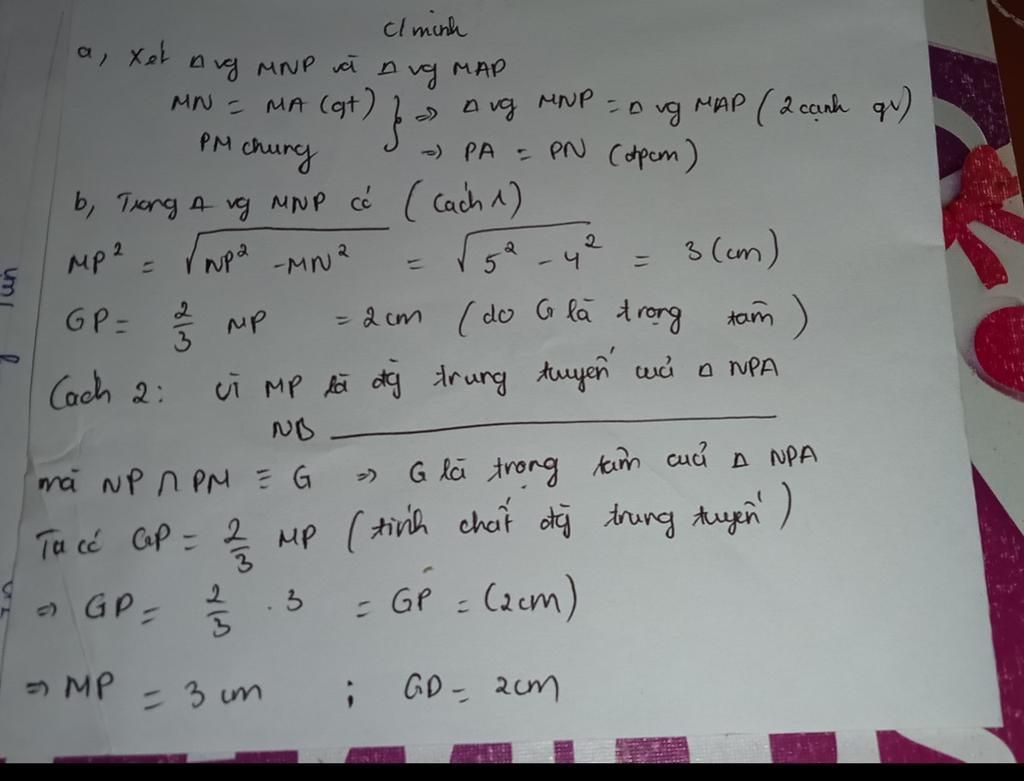 C/minh
a, Xét Δ vg MNP và Δ vg MAP
MN = MA (gt) } => Δ vg MNP = Δ vg MAP (2 cạnh gv)
PM chung => PA = PN (đpcm)
b, Trong Δ vg MNP có (Cách 1)
MP² = √NP² - MN² = √5² - 4² = 3 (cm)
GP = 2/3 MP = 2cm (do G là trọng tâm)
Cách 2: Vì MP là đg trung tuyến cuả Δ NPA
NB
mà NP ∩ PM ≡ G => G là trọng tâm cuả Δ NPA
Ta có GP = 2/3 MP (tính chất đg trung tuyến)
=> GP = 2/3 . 3 = GP = (2cm)
=> MP = 3 cm ; GD = 2cm